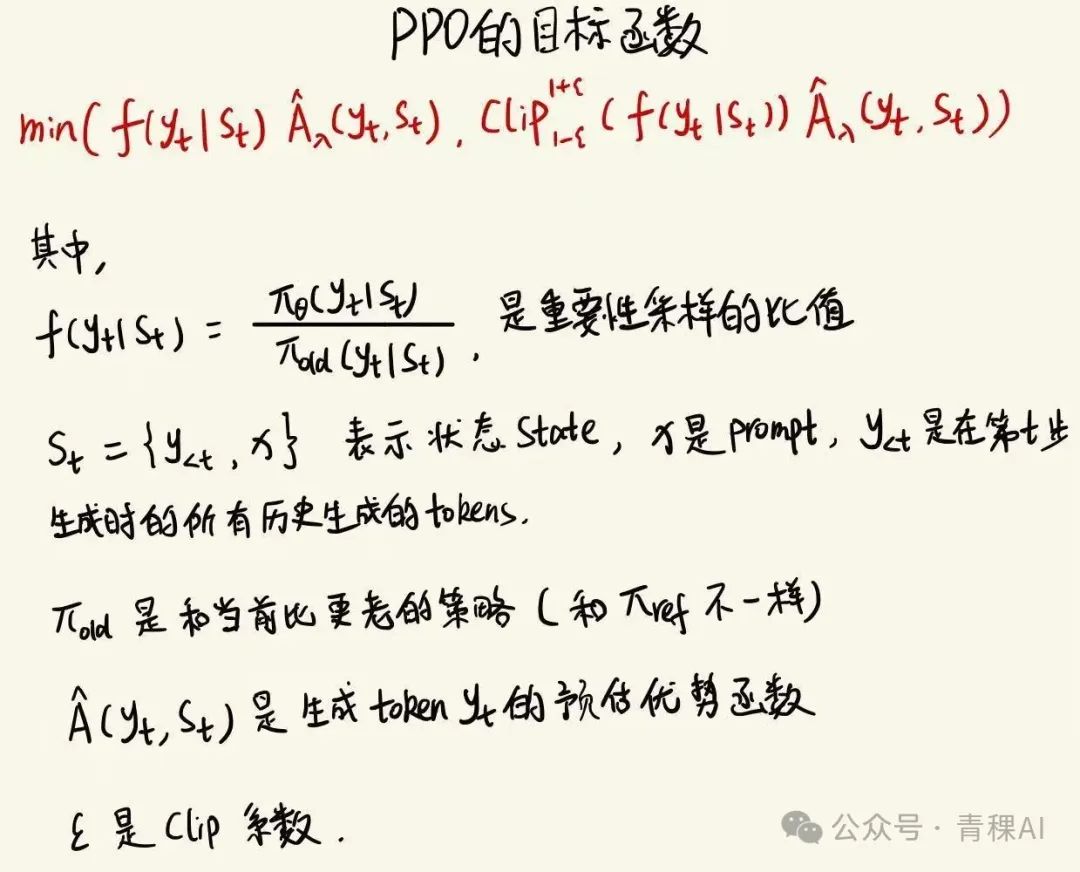 PPO的目标函数
min( f(y_t|S_t) Â_λ(y_t,S_t), Clip_{1-ε}^{1+ε} ( f(y_t|S_t)) Â_λ(y_t,S_t))
其中,
f(y_t|S_t) = π_θ(y_t|S_t) / π_old(y_t|S_t), 是重要性采样的比值
S_t = {y_{<t}, x} 表示状态State, x是prompt, y_{<t}是在第t步
生成时的所有历史生成的tokens.
π_old 是和当前比更老的策略 (和π_ref不一样)
Â(y_t,S_t)是生成token y_t的预估优势函数
ε是Clip系数.
公众号·青稞AI